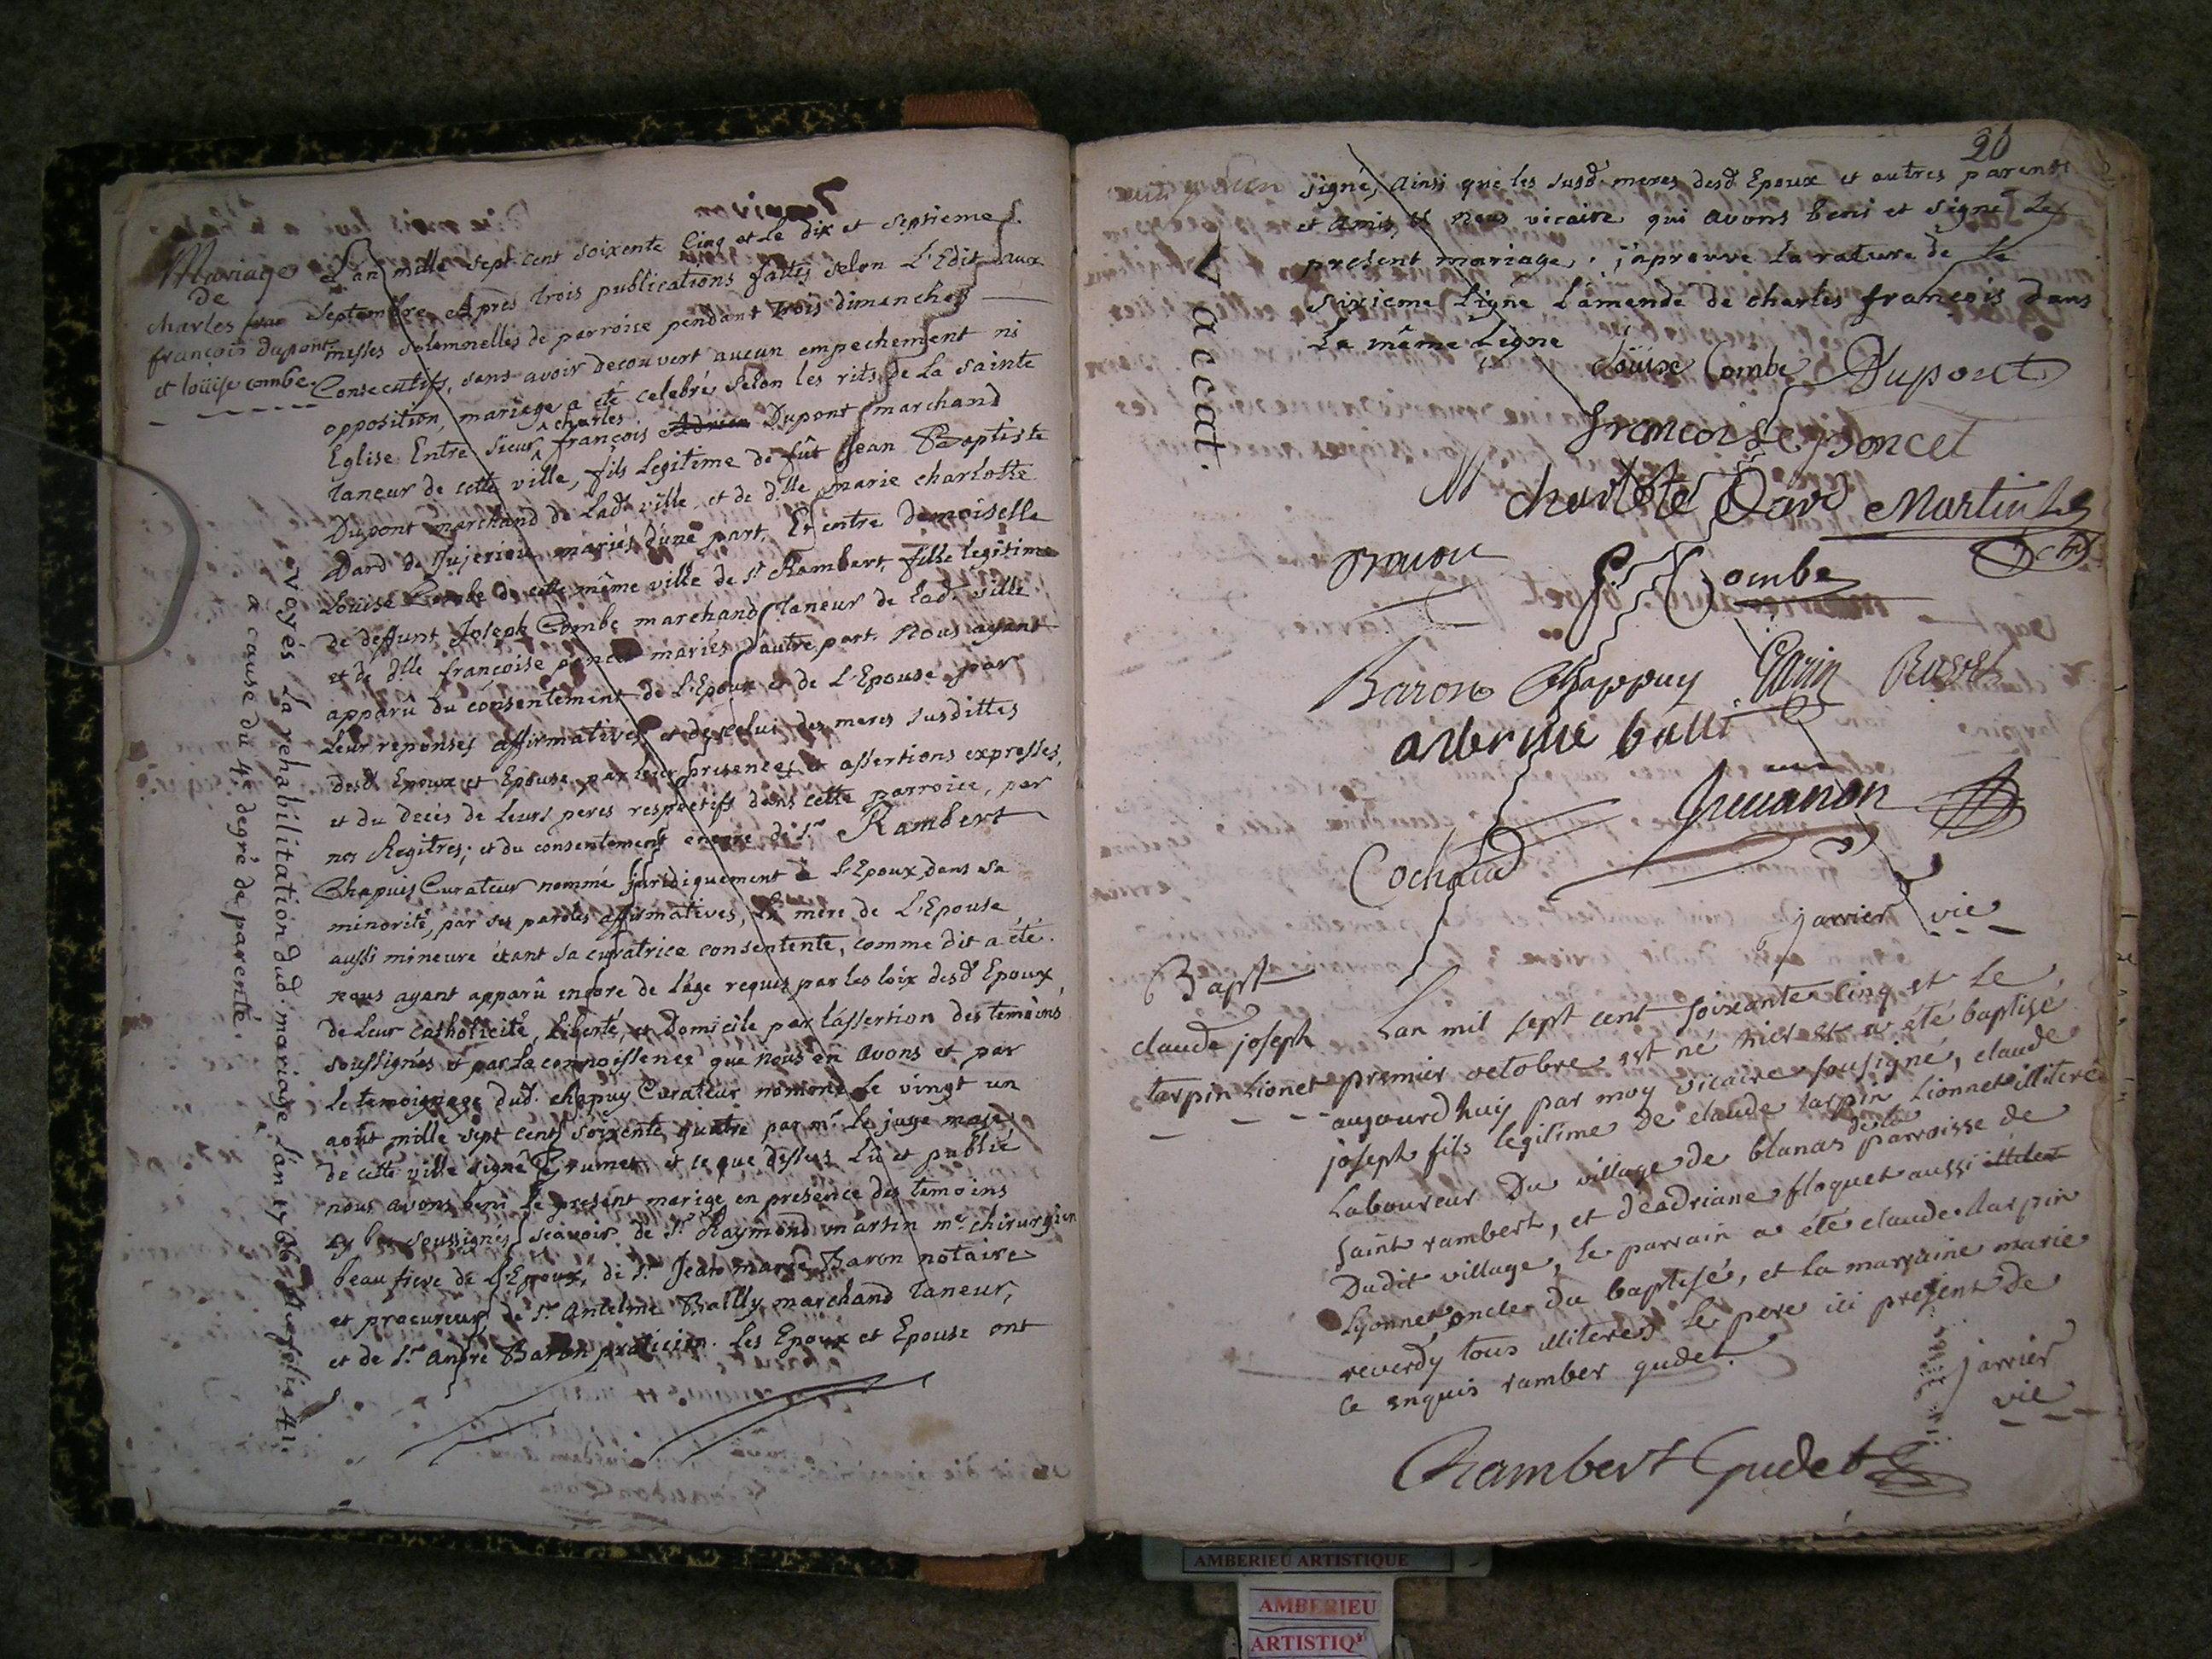 Mariage
de
charles
françois dupont
et loüise combe.
L'an mille sept cent soixente Cinq et Le dix et septieme
Septembre Après trois publications faites selon L'Edit aux
messes solemnelles de parroise pendant trois dimanches
Consecutifs, sans avoir decouvert aucun empechement ni
opposition, mariage a été celebré selon les rits de La sainte
Eglise Entre sieur charles françois Adrien Dupont marchand
taneur de cette ville, fils Legitime de fût Jean Baptiste
Dupont marchand de Lad. ville et de dlle marie charlotte
Dard de Jujerieu mariés d'une part, Et entre demoiselle
Louise Combe de cette même ville de st Rambert, fille legitime
de deffunt Joseph Combe marchand taneur de Lad. ville
et de dlle françoise poncet mariés d'autre part. Nous ayant
apparû du consentement de L'Epoux et de L'Epouse par
Leur reponses affirmatives et de celui des meres susdittes
desd. Epoux et Epouse par leur presences et assertions expresses,
et du decès de Leurs peres respectifs dans cette parroice, par
nos Regitres; et du consentement encore de sr Rambert
Chapuis Curateur nommé juridiquement à L'Epoux dans sa
minorité, par ses paroles affirmatives, La mère de L'Epouse
aussi mineure étant sa curatrice consentente, comme dit a été.
nous ayant apparû encore de L'age requis par les loix desd. Epoux,
de Leur catholicité, Liberté, et domicile par l'assertion des temoins
soussignés et par La connoissence que nous en avons et par
Le temoignage dud. chapuy Curateur nommé Le vingt un
août mille sept cent soixente quatre par mr Le juge mage
de cette ville signé Grumet, et ce que dessus Lû et publié
nous avons beni Le present mariage en presence des temoins
soussignés sçavoir de sr Raymond martin me chirurgien
beau frere de L'Epoux, de sr Jean marie Baron notaire
et procureur, de sr Antelme Bailly marchand taneur,
et de sr André Baron praticien. Les Epoux et Epouse ont
voyés La rehabilitation dud. mariage L'an 1766 folio 41.
à cause du 4e degré de parenté.
20
Vaccat.
signé, Ainsi que les susd. meres desd. Epoux et autres parents
et Amis, et nous vicaire qui avons beni et signé Le
present mariage. j'aprouve La rature de la
sixieme Ligne L'amende de charles françois dans
La même Ligne
Loüise Combe Dupont
françoise poncet
M charlote Dard Martin
Combe
Baron Chappuy Garin
Cochaud
jarrier vic
Bapt
claude joseph
tarpin Lionet
Lan mil sept cent soixante Cinq et Le
premier octobre est né hier et a été baptisé
aujourdhuy par moy vicaire sousigné, claude
joseph fils legitime de claude tarpin Lionnet illiteré
Laboureur Du village de blanas de la parroisse de
saint rambert, et deadriane floquet aussi
Dudit village, le parrain a été claude tarpin
Lyonnet oncle du baptisé, et la marraine marie
reverdy tous illiteres Le pere ici present de
ce enquis ramber gudet.
jarrier
vic
Rambert Gudet
AMBERIEU ARTISTIQUE
AMBERIEU
ARTISTIQ